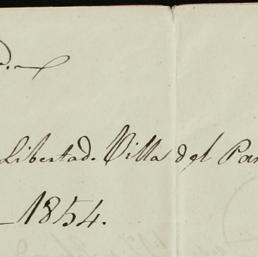 Libertad. Villa del
1854.